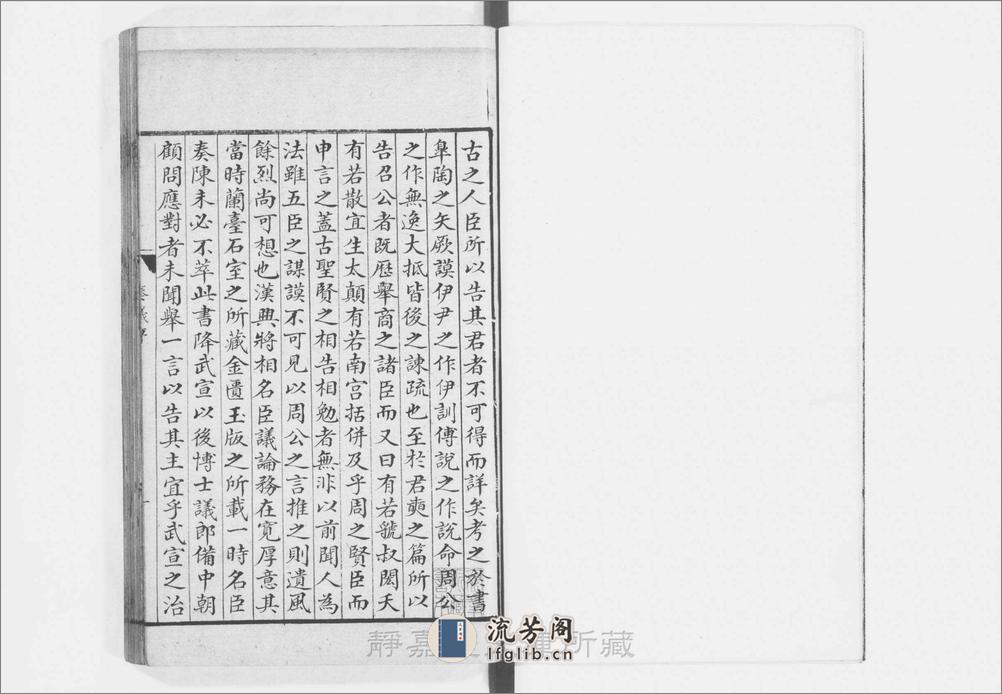 古之人臣所以告其君者不可得而詳矣考之於書
臯陶之矢厥謨伊尹之作伊訓傅說之作說命周公
之作無逸大抵皆後之諫疏也至於君奭之篇所以
告召公者既歷舉商之諸臣而又曰有若虢叔閎夭
有若散宜生太顛有若南宫括併及乎周之賢臣而
申言之蓋古聖賢之相告相勉者無非以前聞人為
法雖五臣之謀謨不可見以周公之言推之則遺風
餘烈尚可想也漢興將相名臣議論務在寬厚意其
當時蘭臺石室之所藏金匱玉版之所載一時名臣
奏陳未必不萃此書降武宣以後博士議郎備中朝
顧問應對者未聞舉一言以告其主宜乎武宣之治
奏議序
流芳阁
lfglib.cn
靜嘉
所藏